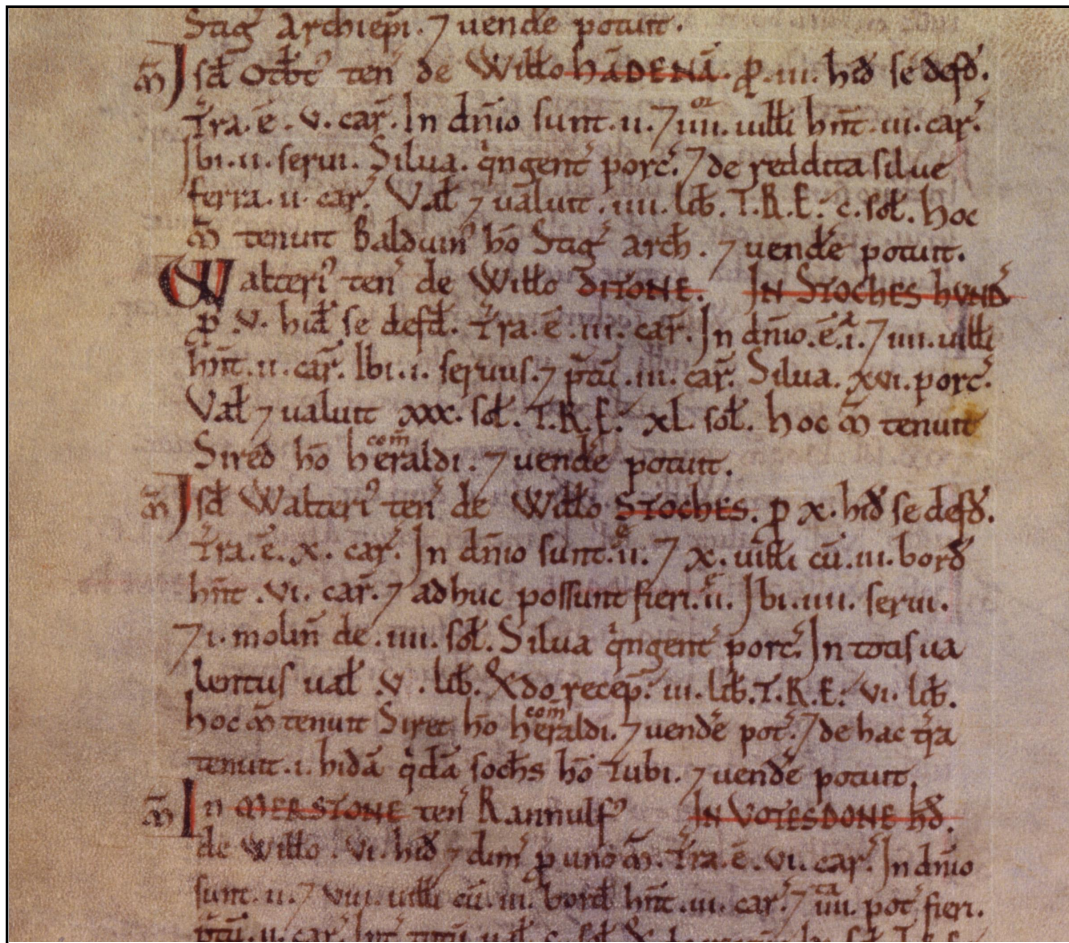 Stig̃ Archiep̃i. ⁊ uendẽ potuit.
ꝏ̃ Isd̃ Otƀt᷒ teñ de Wiłło HADENA̅. ꝓ .iii. hid̃ se defd̃.
T̃ra.ẽ.v.car̃. In dñio sunt.ii. ⁊ iiii. uiłłi hñt.iii.car̃.
Ibi.ii.serui. Silua. q̃ngent̃ porc̃. ⁊ de reddita siluę
ferra.ii.car̃. Vał ⁊ ualuit .iiii. liƀ. T.R.E. c.soł. hoc
ꝏ̃ tenuit Balduin᷒ hõ Stig̃ arch̃. ⁊ uendẽ potuit.
Walteri᷒ teñ de Wiłło DITONE. IN STOCHES HVND̃
ꝓ .v. hid̃ se defd̃. T̃ra.ẽ.iii.car̃. In dñio.ẽ.i. ⁊ iiii.uiłłi
hñt.ii.car̃. Ibi.i.seruus. ⁊ p̃tũ.iii.car̃. Silua. xvi.porc̃.
Vał ⁊ ualuit xxx.soł. T.R.E. xl.soł. hoc ꝏ̃ tenuit
Sired hõ heraldi com̃. ⁊ uendẽ potuit.
ꝏ̃ Isd̃ Walteri᷒ teñ de Wiłło STOCHES. ꝓ x.hid̃ se defd̃.
T̃ra.ẽ.x.car̃. In dñio sunt.ii. ⁊ x.uiłłi cũ.iii.bord̃
hñt.vi.car̃. ⁊ adhuc possunt fieri.ii. Ibi.iiii.serui.
⁊ i.molin̄ de.iiii.soł. Silua q̃ngent̃ porc̃. In totis ua
lentijs uał .v.liƀ. Q̃do recep̃. iii.liƀ. T.R.E. vi.liƀ.
hoc ꝏ̃ tenuit Siret hõ heraldi com̃. ⁊ uendẽ pot̃. ⁊ de hac t̃ra
tenuit.i.hidã q̃dã sochs hõ Tubi. ⁊ uendẽ potuit
ꝏ̃ In MERSTONE teñ Rannulf᷒ IN VOTESDONE HD̃.
de Wiłło .vi.hid̃ ⁊ dim̃ ꝓ uno ꝏ̃. T̃ra.ẽ.vi.car̃. In dñio
sunt.ii. ⁊ viii.uiłłi cũ.iii.bord̃ hñt.iii.car̃. ⁊ iiii.ta pot̃ fieri.
p̃tũ.ii.car̃.